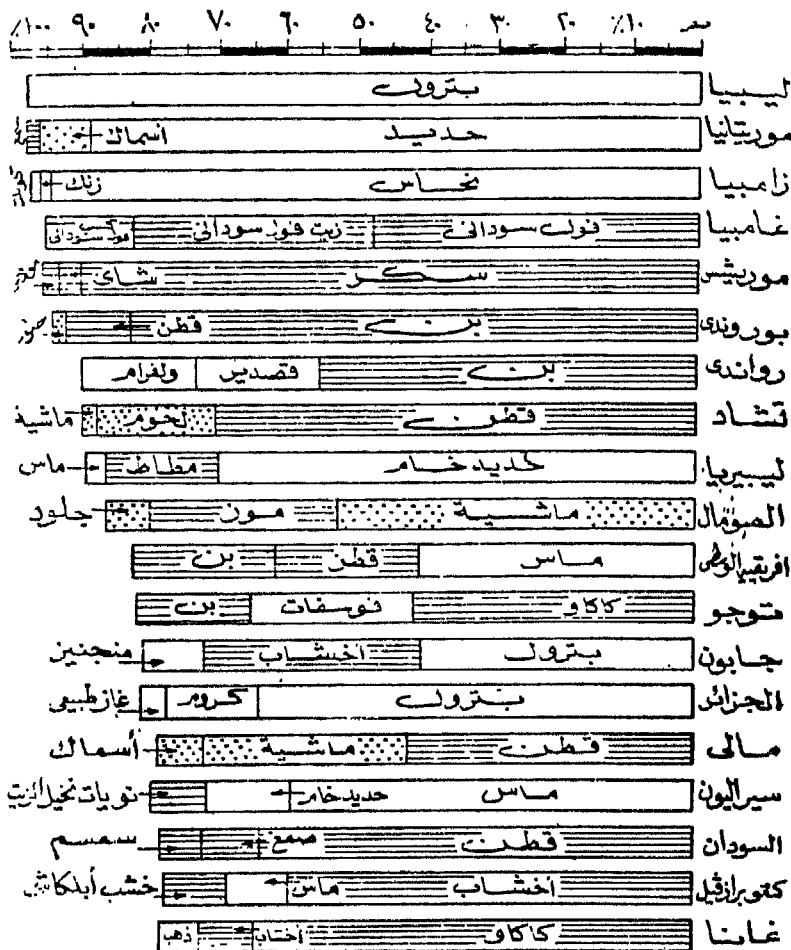 صفر ١٠٪ ٢٠ ٣٠ ٤٠ ٥٠ ٦٠ ٧٠ ٨٠ ٩٠ ١٠٠٪
ليبيا بترول
موريتانيا حديد أسماك
زامبيا نحاس زنك
غامبيا فول سودانى زيت فول سودانى كسب فول سودانى
موريشس سكر شاى
بوروندى بن قطن
رواندى بن قصدير ولفرام
تشاد قطن لحوم ماشية
ليبيريا حديد خام مطاط ماس
الصومال ماشية موز جلود
افريقيا الوسطى ماس قطن بن
توجو كاكاو فوسفات بن
جابون بترول أخشاب منجنيز
الجزائر بترول كروم غاز طبيعى
مالى قطن ماشية أسماك
سيراليون ماس حديد خام نويات نخيل الزيت
السودان قطن صمغ سمسم
كنغو برازفيل أخشاب ماس خشب أبلكاش
غانا كاكاو أخشاب ذهب